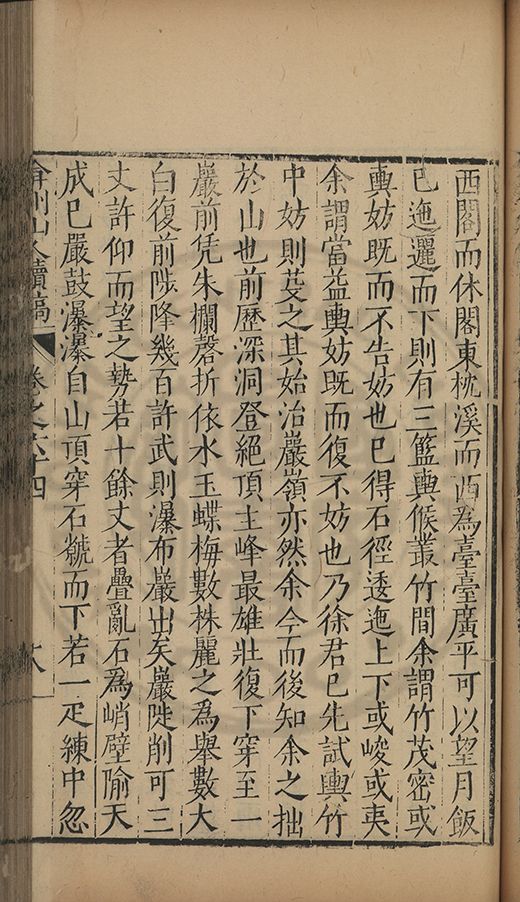 西閣而休閣東枕溪而西為臺臺廣平可以望月飯
已迤邐而下則有三籃輿候叢竹間余謂竹茂密或
輿妨既而不告妨也已得石徑逶迤上下或峻或夷
余謂當益輿妨既而復不妨也乃徐君已先試輿竹
中妨則芟之其始治巖嶺亦然余今而後知余之拙
於山也前歷深洞登絕頂主峰最雄壯復下穿至一
巖前凭朱欄磬折依水玉蝶梅數株麗之為舉數大
白復前陟降幾百許武則瀑布巖出矣巖陡削可三
丈許仰而望之勢若十餘丈者疊亂石為峭壁隃天
成已嚴鼓瀑瀑自山頂穿石而下若一疋練中忽
弇州山人續稿 卷之六十四